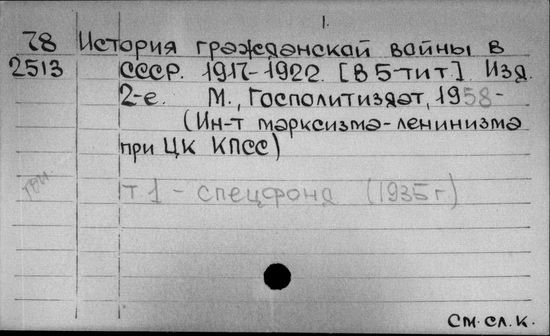 1.
78 История гражданской войны в
2513 СССР. 1917-1922. [В 5-ти т.] Изд.
2-е. М., Госполитиздат, 1958-
(Ин-т марксизма-ленинизма
при ЦК КПСС)
т. 1 - спецфонд (1935 г.)
См. сл. к.